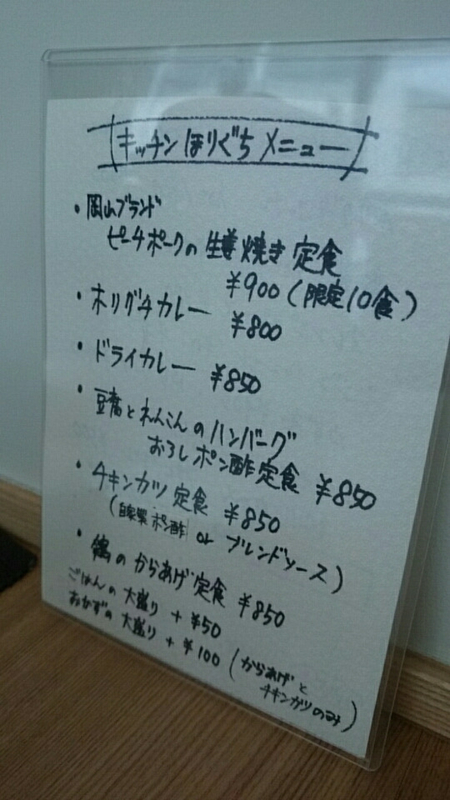 キッチンほりぐちメニュー
・岡山ブランド
ピーチポークの生姜焼き定食
¥900(限定10食)
・ホリグチカレー ¥800
・ドライカレー ¥850
・豆腐とれんこんのハンバーグ
おろしポン酢定食 ¥850
・チキンカツ定食 ¥850
(自家製ポン酢 or ブレンドソース)
・鶏のからあげ定食 ¥850
ごはんの大盛り +¥50
おかずの大盛り +¥100(からあげと
チキンカツのみ)